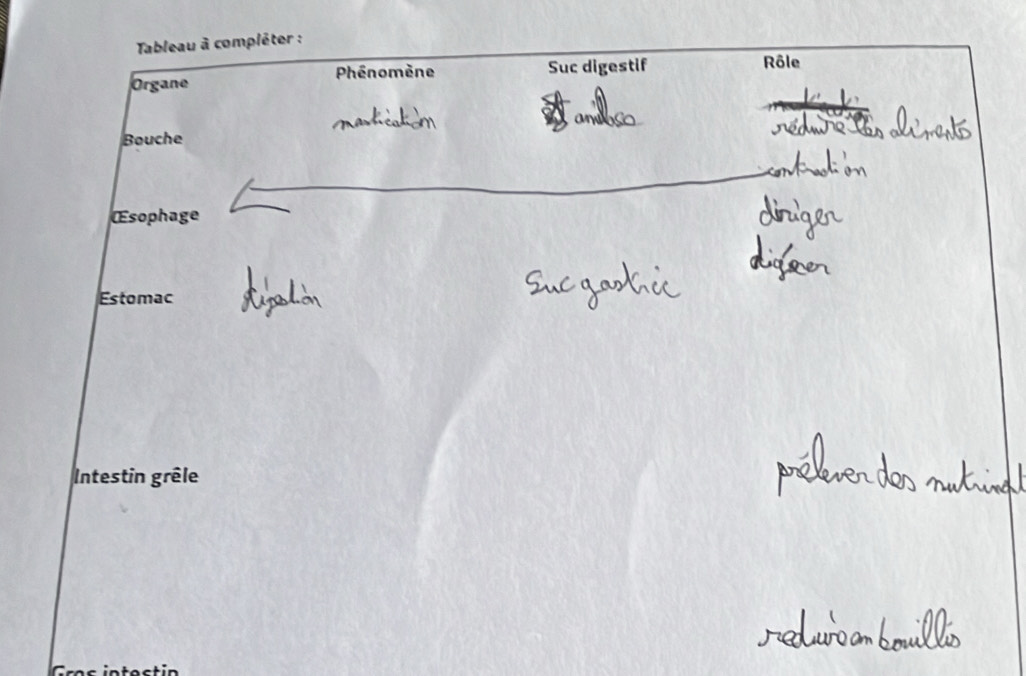 Tableau à compléter :
Organe Phénomène Suc digestif Rôle
Bouche mastication réduire les aliments
contraction
Œsophage diriger
digérer
Estomac digestion Suc gastric
Intestin grêle prélever des nutriment
reduire an bouillis
Gros intestin